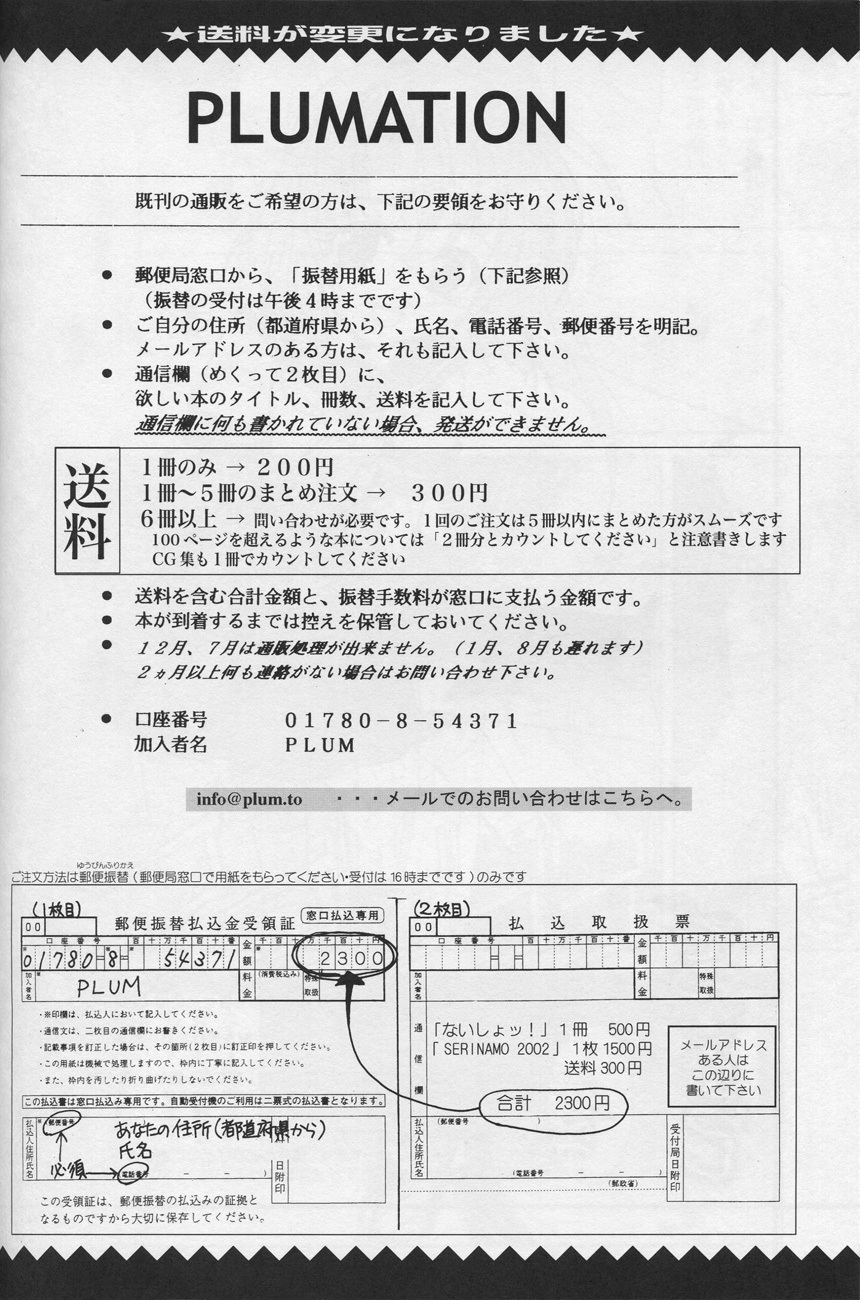 ★送料が変更になりました★
PLUMATION
既刊の通販をご希望の方は、下記の要領をお守りください。
● 郵便局窓口から、「振替用紙」をもらう（下記参照）
（振替の受付は午後４時までです）
● ご自分の住所（都道府県から）、氏名、電話番号、郵便番号を明記。
メールアドレスのある方は、それも記入して下さい。
● 通信欄（めくって２枚目）に、
欲しい本のタイトル、冊数、送料を記入して下さい。
通信欄に何も書かれていない場合、発送ができません。
送料
１冊のみ → ２００円
１冊～５冊のまとめ注文 → ３００円
６冊以上 → 問い合わせが必要です。１回のご注文は５冊以内にまとめた方がスムーズです
100ページを超えるような本については「２冊分とカウントしてください」と注意書きします
CG集も１冊でカウントしてください
● 送料を含む合計金額と、振替手数料が窓口に支払う金額です。
● 本が到着するまでは控えを保管しておいてください。
● １２月、７月は通販処理が出来ません。（１月、８月も遅れます）
２ヵ月以上何も連絡がない場合はお問い合わせ下さい。
● 口座番号 ０１７８０－８－５４３７１
加入者名 ＰＬＵＭ
info@plum.to ・・・メールでのお問い合わせはこちらへ。
ゆうびんふりかえ
ご注文方法は郵便振替（郵便局窓口で用紙をもらってください・受付は16時までです）のみです
(1枚目)
00
郵便振替払込金受領証
窓口払込専用
口座番号 百十万千百十番
01780-8-54371
金額
千百十万千百十円
2300
加入者名
PLUM
料金
(消費税込み)
特殊取扱
・※印欄は、払込人において記入してください。
・通信文は、二枚目の通信欄にお書きください。
・記載事項を訂正した場合は、その箇所(2枚目)に訂正印を押してください。
・この用紙は機械で処理しますので、枠内に丁寧に記入してください。
・また、枠内を汚したり折り曲げたりしないでください。
この払込書は窓口払込み専用です。自動受付機のご利用は二票式の払込書となります。
払込人住所氏名
郵便番号
あなたの住所(都道府県から)
氏名
必須
(電話番号 － － )
日附印
この受領証は、郵便振替の払込みの証拠と
なるものですから大切に保存してください。
(2枚目)
00
払込取扱票
口座番号 百十万千百十番
金額
千百十万千百十円
加入者名
料金
特殊取扱
通信欄
「ないしょッ！」１冊 500円
「SERINAMO 2002」１枚 1500円
送料 300円
合計 2300円
メールアドレス
ある人は
この辺りに
書いて下さい
払込人住所氏名
(郵便番号 )
(電話番号 － － )
受付局日附印
(郵政省)